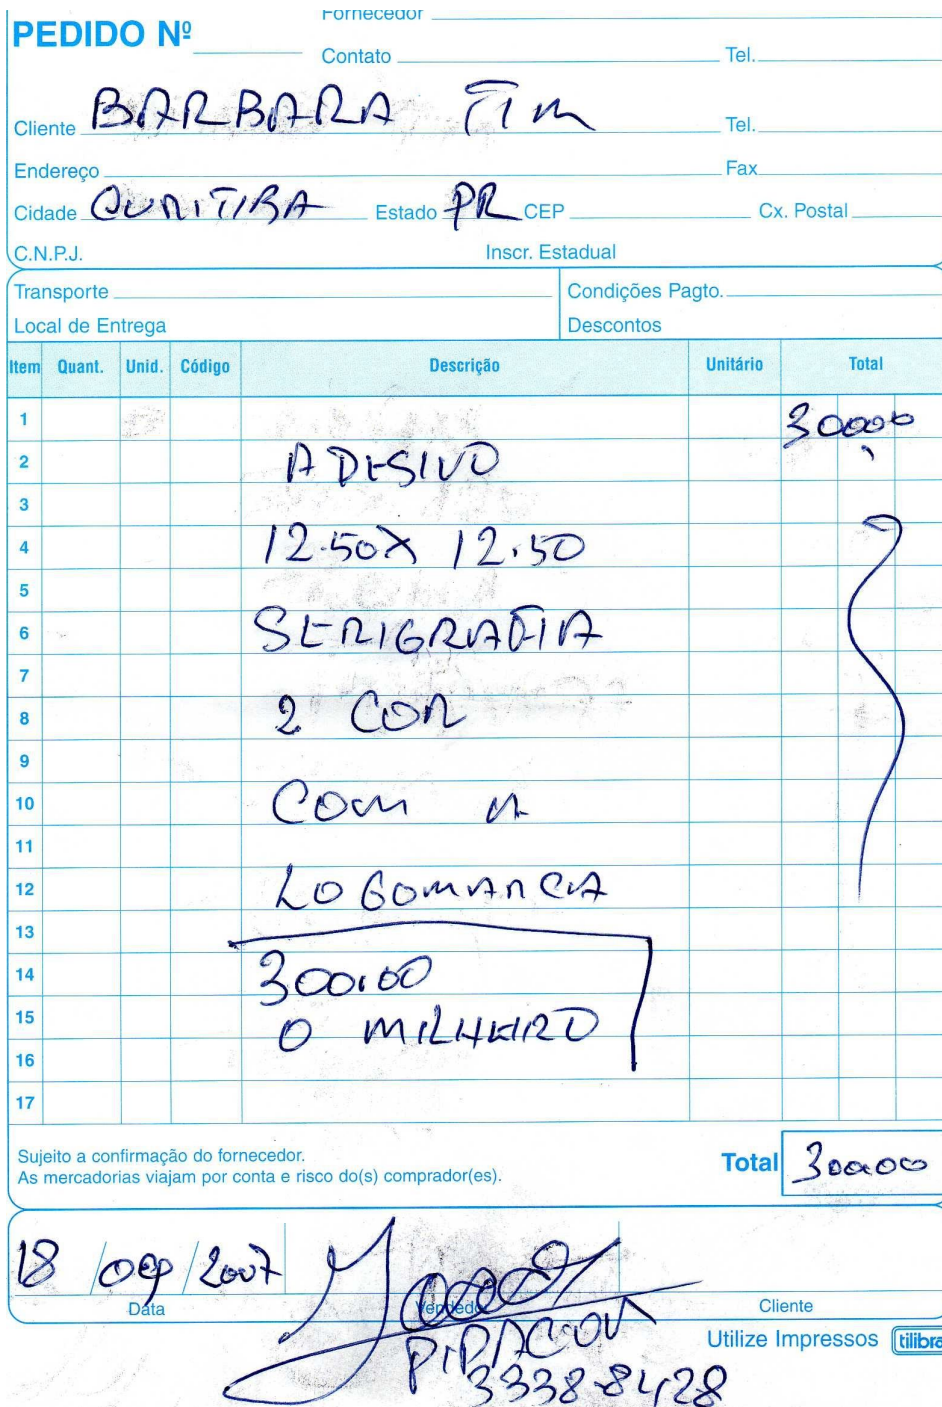 Fornecedor
PEDIDO Nº
Contato Tel.
Cliente BARBARA TIM Tel.
Endereço Fax
Cidade CURITIBA Estado PR CEP Cx. Postal
C.N.P.J. Inscr. Estadual
Transporte Condições Pagto.
Local de Entrega Descontos
Item Quant. Unid. Código Descrição Unitário Total
1 300,00
2 ADESIVO
3
4 12.50 X 12.50
5
6 SERIGRAFIA
7
8 2 COR
9
10 COM A
11
12 LOGOMARCA
13
14 300,00
15 O MILHEIRO
16
17
Sujeito a confirmação do fornecedor.
As mercadorias viajam por conta e risco do(s) comprador(es). Total 300,00
18 / 09 / 2007
Data Vendedor Cliente
Utilize Impressos tilibra
3338-8428